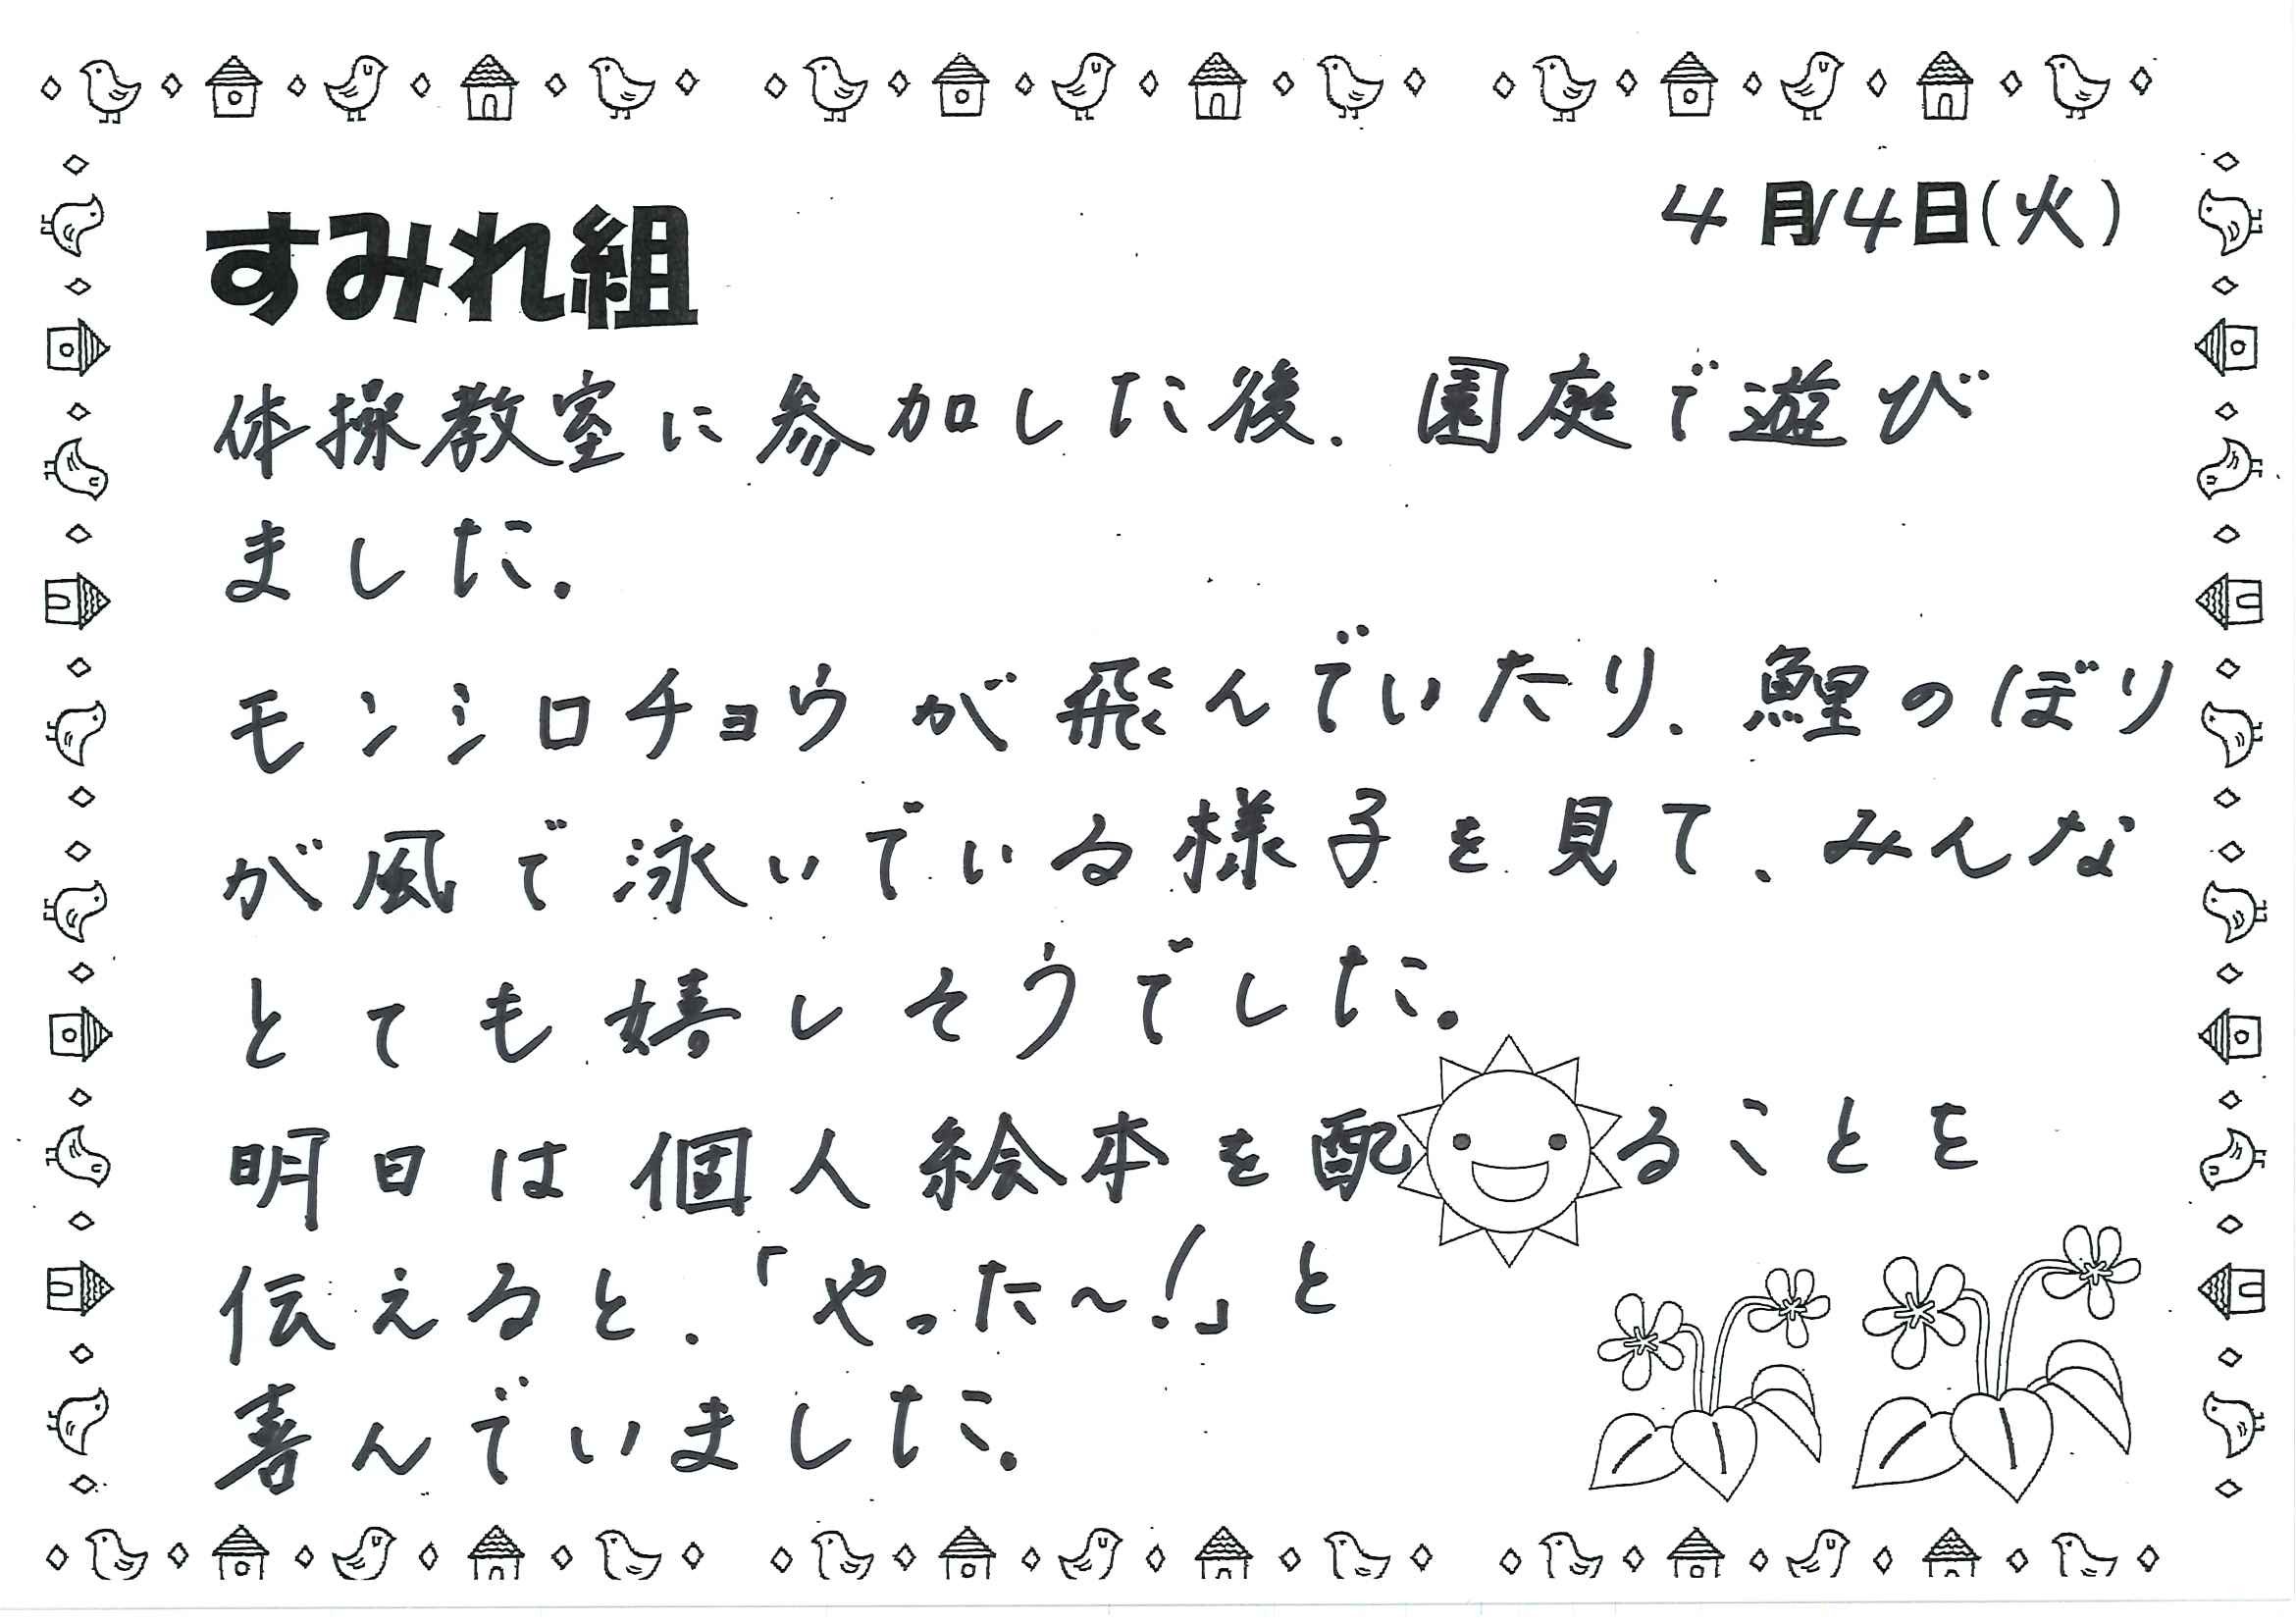 4月14日(火)
すみれ組
体操教室に参加した後、園庭で遊び
ました。
モンシロチョウが飛んでいたり、鯉のぼり
が風で泳いでいる様子を見て、みんな
とても嬉しそうでした。
明日は個人絵本を配ることを
伝えると、「やった〜!」と
喜んでいました。